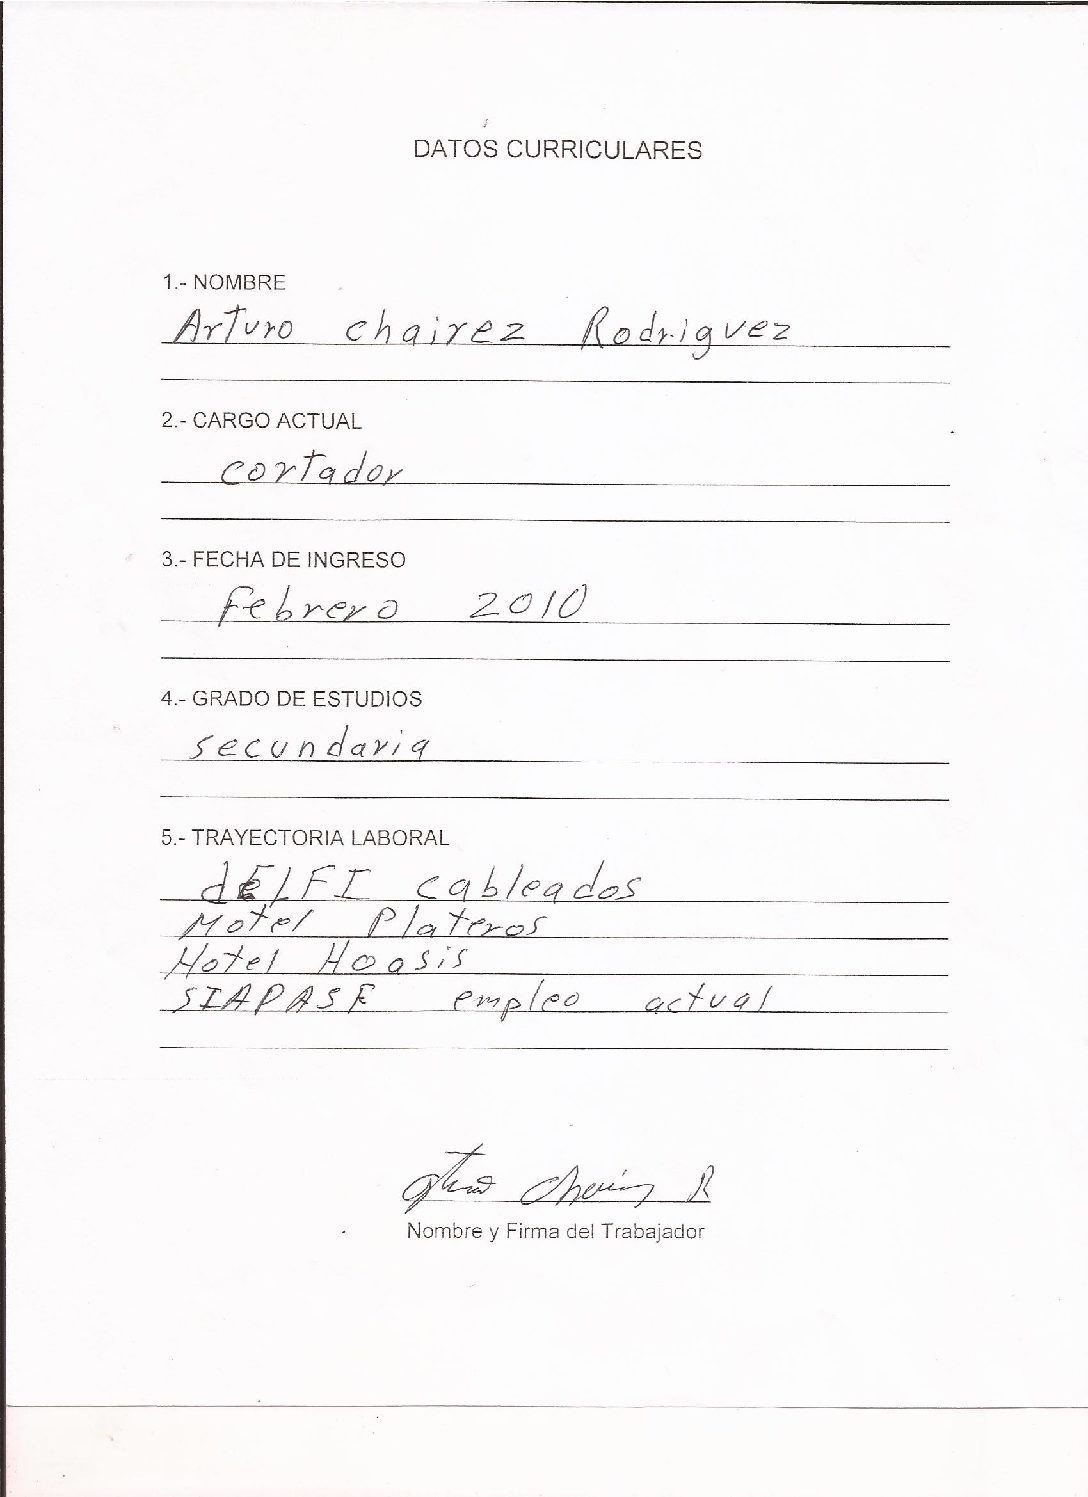 DATOS CURRICULARES
1.- NOMBRE
Arturo Chairez Rodriguez
2.- CARGO ACTUAL
cortador
3.- FECHA DE INGRESO
Febrero 2010
4.- GRADO DE ESTUDIOS
secundaria
5.- TRAYECTORIA LABORAL
dELFI cableados
Motel Plateros
Hotel Hoasis
SIAPASF empleo actual
Arturo Chairez R
Nombre y Firma del Trabajador